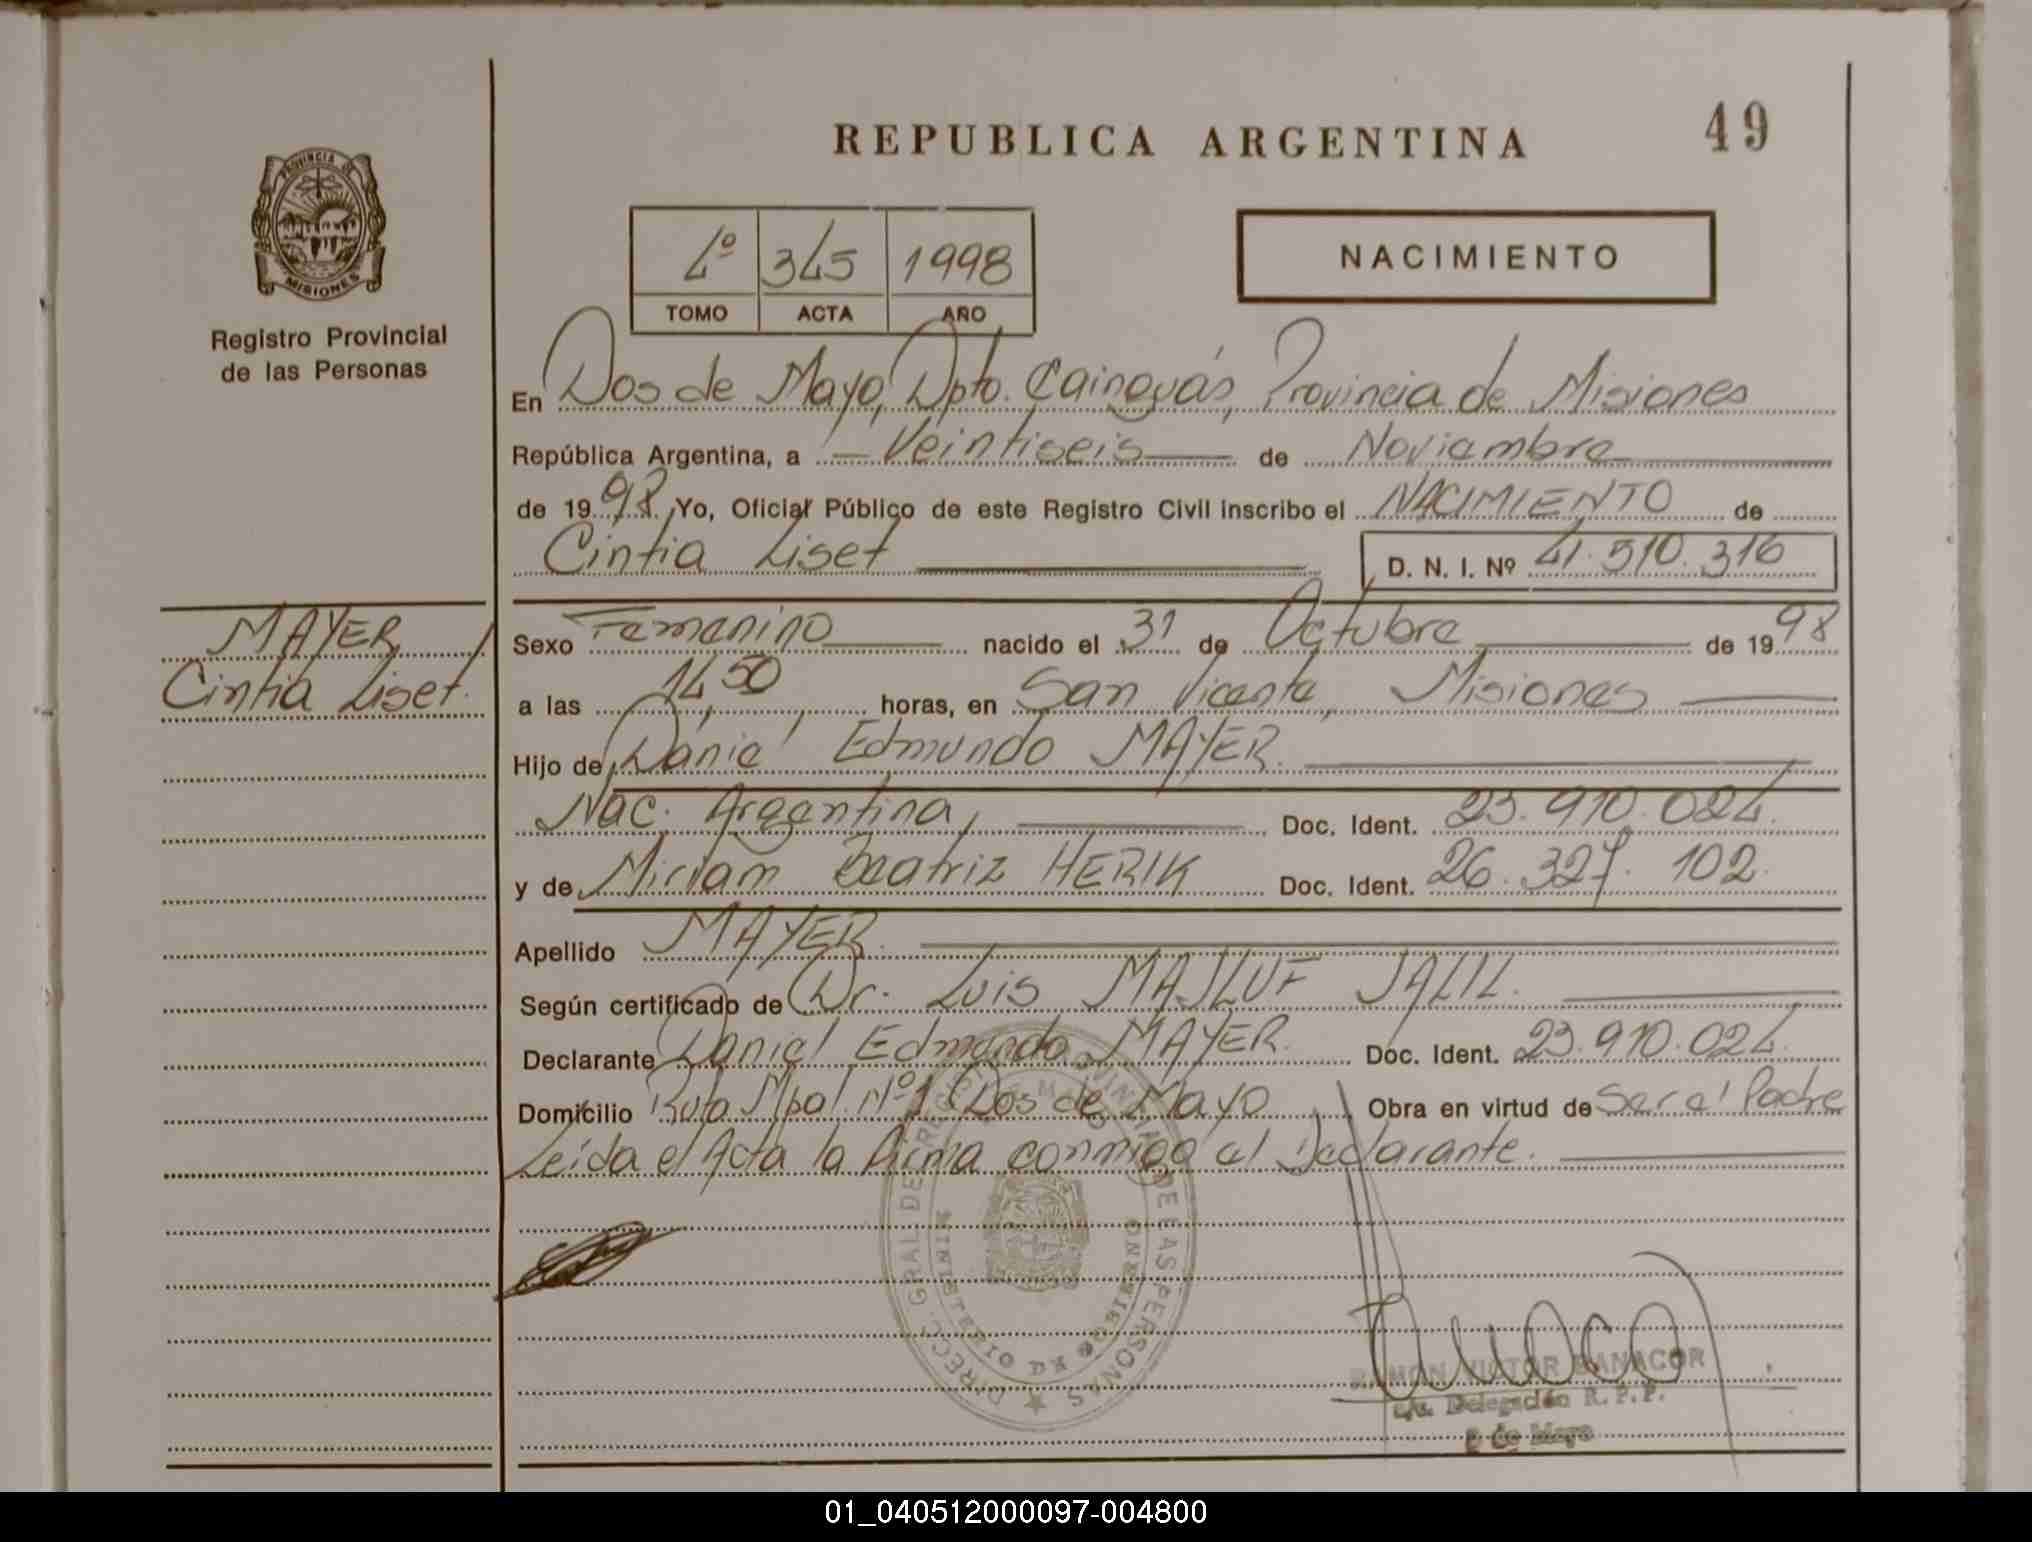 REPUBLICA ARGENTINA
49
PROVINCIA DE
MISIONES
Registro Provincial
de las Personas
4º 345 1998
TOMO ACTA AÑO
NACIMIENTO
En Dos de Mayo, Dpto. Cainguás, Provincia de Misiones
República Argentina, a Veintiseis de Noviembre
de 1998 Yo, Oficial Público de este Registro Civil inscribo el NACIMIENTO de
Cintia Liset D. N. I. Nº 41.510.316
MAYER,
Cintia Liset.
Sexo Femenino nacido el 31 de Octubre de 1998
a las 14,50 horas, en San Vicente, Misiones
Hijo de Daniel Edmundo MAYER.
Nac. Argentina, Doc. Ident. 23.910.024.
y de Miriam Beatriz HERIK Doc. Ident. 26.327.102.
Apellido MAYER.
Según certificado de Dr. Luis MAJLUF JALIL.
Declarante Daniel Edmundo MAYER. Doc. Ident. 23.910.024.
Domicilio Ruta Mpal. Nº1 Dos de Mayo Obra en virtud de Ser el Padre
Leída el Acta la firma conmigo el Declarante.
DIRECC. GRAL DE PERSONAS
MINISTERIO DE GOBIERNO
RAMON VICTOR BANACOR
a/c. Delegación R. P. P.
2 de Mayo
01_040512000097-004800